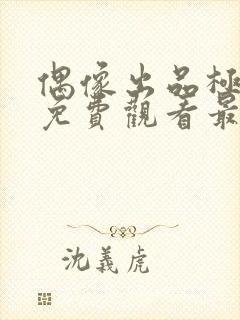 偶像出品極
免費觀看最
沈義虎